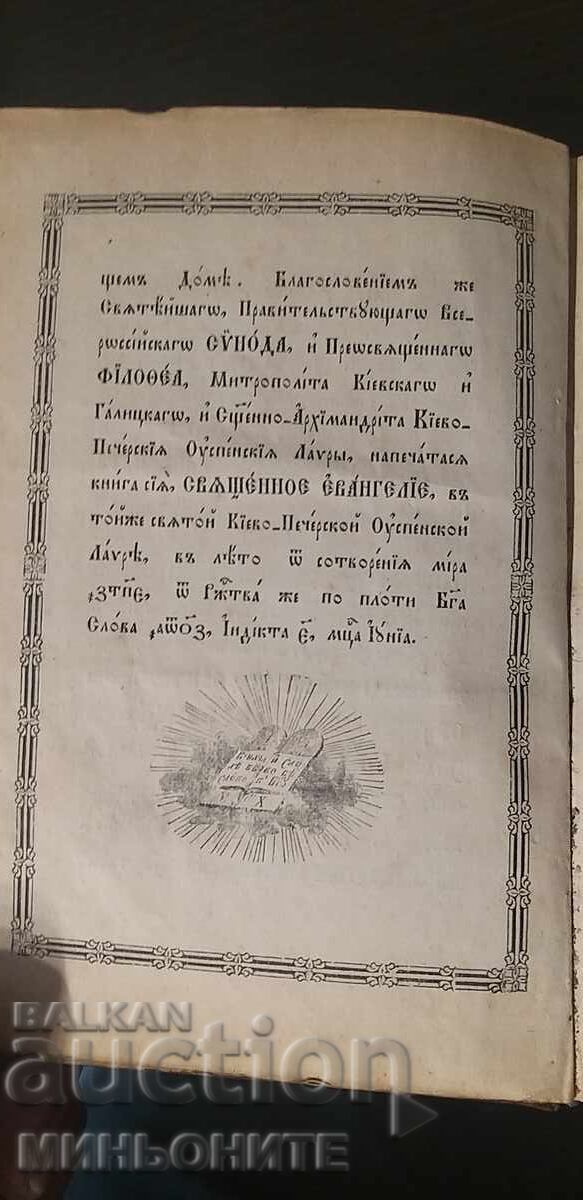 щемъ До́мѣ. Благослове́нїемъ же
Свѧтѣ́йшагѡ, Прави́тельствꙋющагѡ Все-
рѡссі́йскагѡ СѴНО́ДА, и҆ Преѡсвѧще́ннагѡ
ФІЛОѲЕ́А, Митрополі́та Кі́евскагѡ и҆
Га́лицкагѡ, и҆ Сщ҃е́нно-А҆рхїмандрі́та Кі́ево-
Пече́рскїѧ Оу҆спе́нскїѧ Ла́ѵры, напеча́тасѧ
кни́га сїѧ̀, СВѦЩЕ́ННОЕ Е҆ѴА́НГЕЛІЕ, въ
то́йже свѧто́й Кі́ево-Пече́рской Оу҆спе́нской
Ла́ѵрѣ, въ лѣ́то ѿ сотворе́нїѧ мі́ра
҂зтп҃е, ѿ Рж҇тва̀ же по пло́ти Бг҃а
Сло́ва ҂аѿо҃з, І҆ндї́кта е҃, мц҇а І҆ꙋ́нїа.
BALKAN
auction
МИНЬОНИТЕ